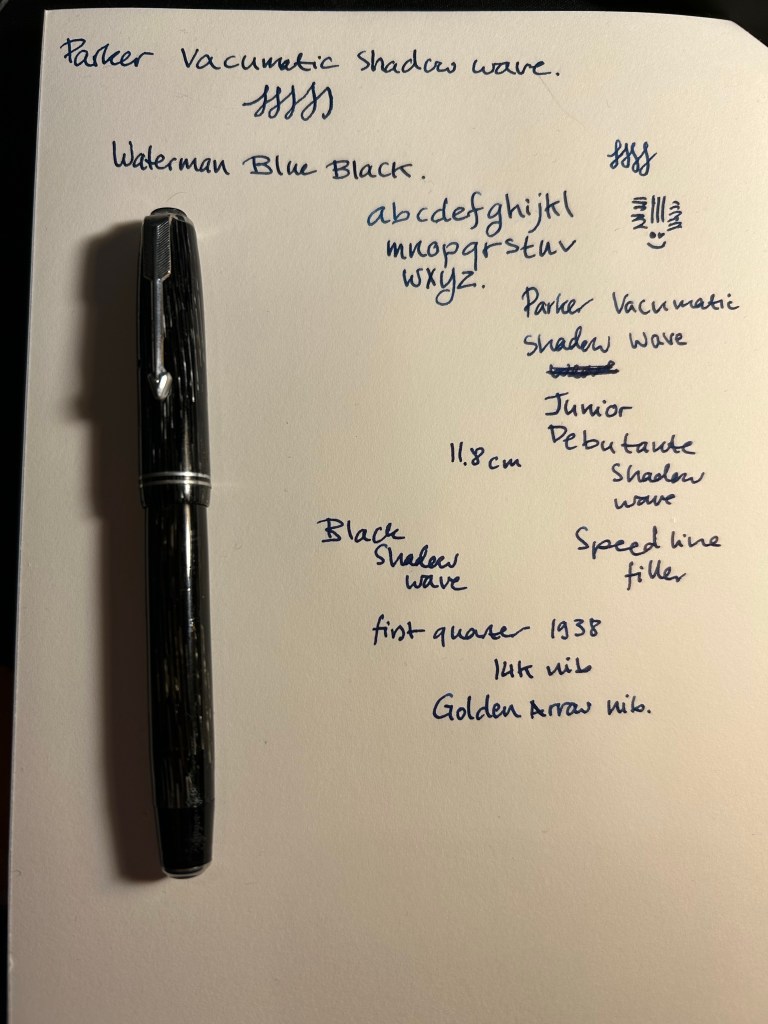 Parker Vacumatic Shadow wave.
Waterman Blue Black.
abcdefghijkl
mnopqrstuv
wxyz.
Parker Vacumatic
Shadow wave
Junior
Debutante
11.8 cm
Shadow
wave
Black
Shadow
wave
Speedline
filler
first quarter 1938
14K nib
Golden Arrow nib.